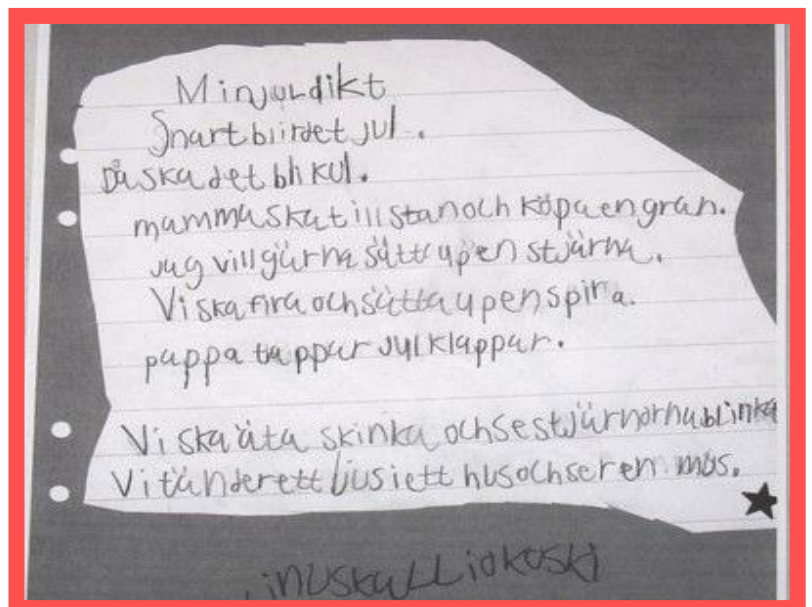 Min juldikt
Snart blir det jul.
Då ska det bli kul.
mamma ska till stan och köpa en gran.
jag vill gärna sätta up en stjärna.
Vi ska fira och sätta up en spira.
pappa tappar julklappar.
Vi ska äta skinka och se stjärnorna blinka
Vi tänder ett ljus i ett hus och ser en mus.